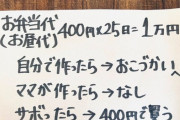 お弁当代 400円×25日=1万円
(お昼代)
自分で作ったら→おこづかいへ
ママが作ったら→なし
サボったら→400円で買う